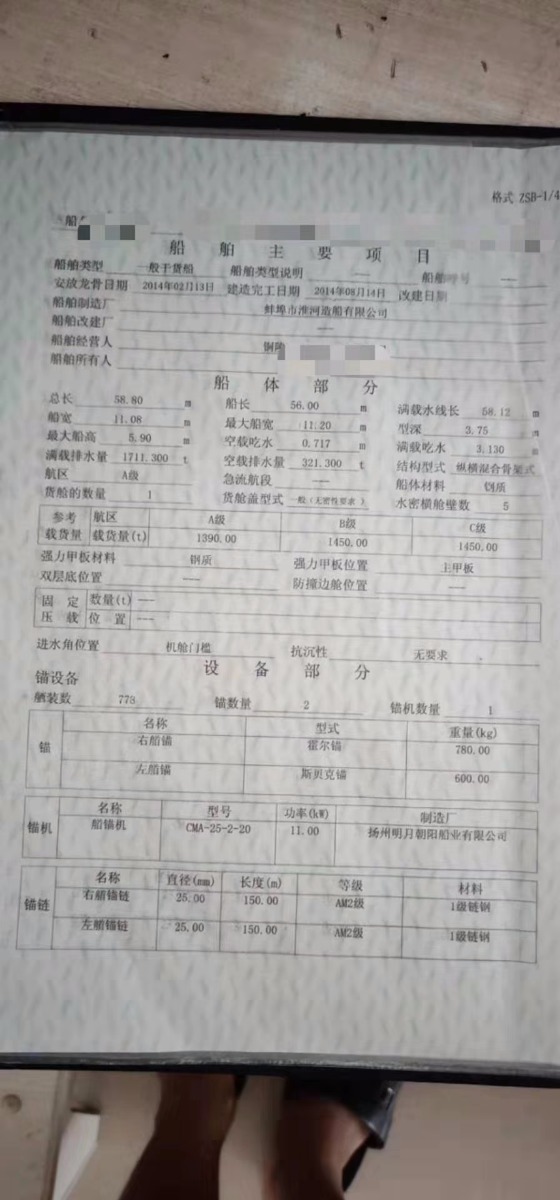 格式 ZSB-1/4
船
船舶主要项目
船舶类型 一般干货船 船舶类型说明 —— 船舶呼号 ——
安放龙骨日期 2014年02月13日 建造完工日期 2014年08月14日 改建日期
船舶制造厂 蚌埠市淮河造船有限公司
船舶改建厂 ——
船舶经营人 铜陵
船舶所有人
船体部分
总长 58.80 m 船长 56.00 m 满载水线长 58.12 m
船宽 11.08 m 最大船宽 11.20 m 型深 3.75 m
最大船高 5.90 m 空载吃水 0.717 m 满载吃水 3.130 m
满载排水量 1711.300 t 空载排水量 321.300 t 结构型式 纵横混合骨架式
航区 A级 急流航段 —— 船体材料 钢质
货舱的数量 1 货舱盖型式 一般（无密性要求） 水密横舱壁数 5
参考载货量 航区 A级 B级 C级
载货量(t) 1390.00 1450.00 1450.00
强力甲板材料 钢质 强力甲板位置 主甲板
双层底位置 —— 防撞边舱位置 ——
固定压载 数量(t) ——
位置 ——
进水角位置 机舱门槛 抗沉性 无要求
设备部分
锚设备
舾装数 778 锚数量 2 锚机数量 1
锚 名称 型式 重量(kg)
右艏锚 霍尔锚 780.00
左艏锚 斯贝克锚 600.00
锚机 名称 型号 功率(kW) 制造厂
艏锚机 CMA-25-2-20 11.00 扬州明月朝阳船业有限公司
锚链 名称 直径(mm) 长度(m) 等级 材料
右艏锚链 25.00 150.00 AM2级 1级链钢
左艏锚链 25.00 150.00 AM2级 1级链钢